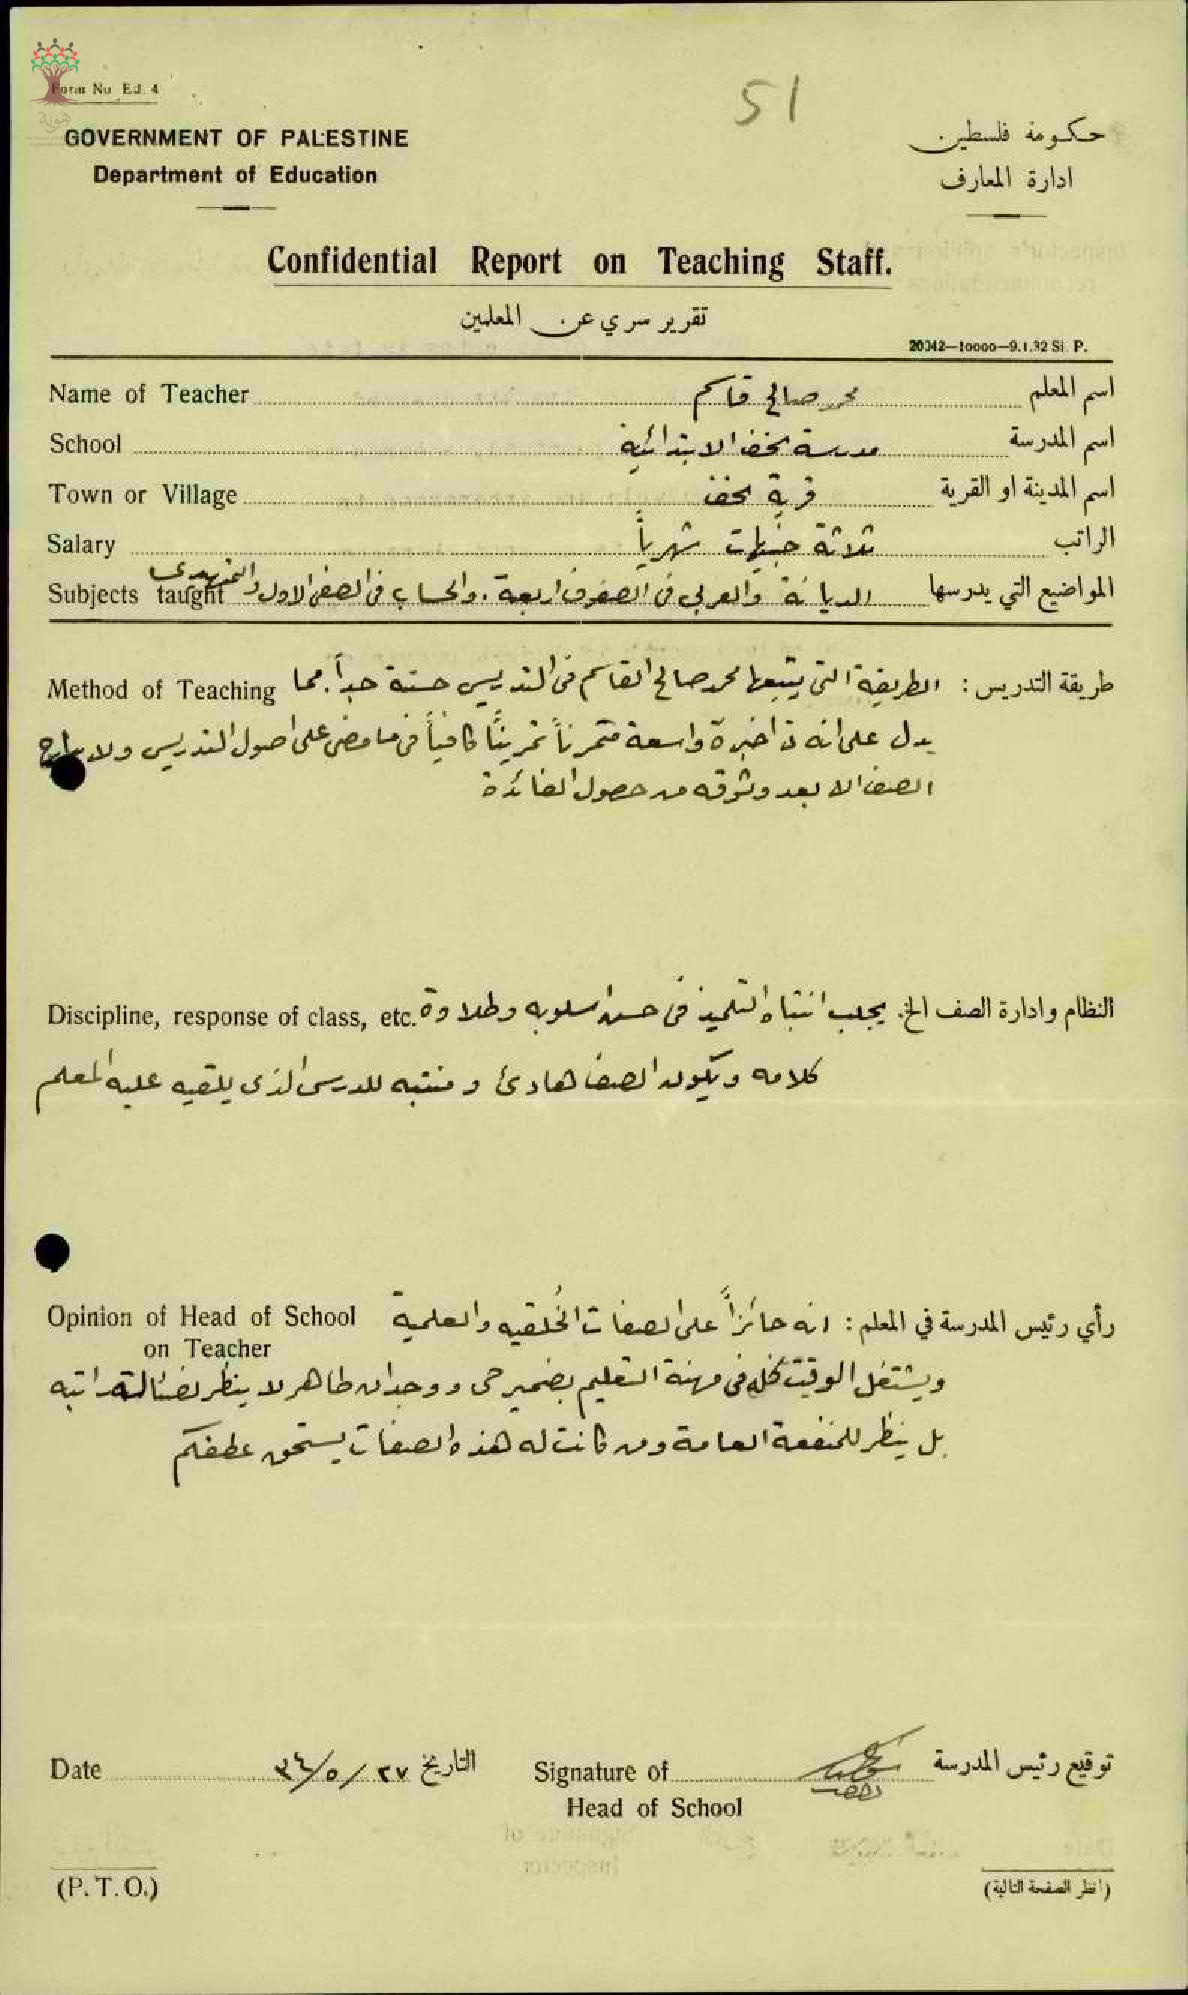 Form No Ed. 4
51
GOVERNMENT OF PALESTINE
Department of Education
حكومة فلسطين
ادارة المعارف
Confidential Report on Teaching Staff.
تقرير سري عن المعلمين
20342—10000—9.1.32 Si. P.
Name of Teacher محمد صالح قاسم اسم المعلم
School مدرسة الابتدائية اسم المدرسة
Town or Village قرية اسم المدينة او القرية
Salary ثلاثة جنيهات شهرياً الراتب
Subjects taught الديانة والعربي في الصفوف اربعة . والحساب في الصف الاول والتمهيدي المواضيع التي يدرسها
Method of Teaching طريقة التدريس : الطريقة التي يتبعها محمد صالح القاسم في التدريس حسنة جداً . مما
يدل على انه ذا خبرة واسعة متمرناً تمريناً كافياً في ما مضى على اصول التدريس ولا يبارح
الصف الا بعد وثوقه من حصول الفائدة
Discipline, response of class, etc. النظام وادارة الصف الخ. يجلب انتباه التلميذ في حسن اسلوبه وطلاوة
كلامه ويكون الصف هادئ ومنتبه للدرس الذي يلقيه عليه المعلم
Opinion of Head of School رأي رئيس المدرسة في المعلم : انه حائزاً على الصفات الخُلقيه والعلمية
on Teacher
ويشتغل الوقت كله في مهنة التعليم بضمير حي ووجدان طاهر لا ينظر لضئالة راتبه
بل ينظر للمنفعة العامة ومن كانت له هذه الصفات يستحق عطفكم
Date ٢٧/٥/٣٤ التاريخ Signature of توقيع رئيس المدرسة
Head of School
(P. T. O.)
(انظر الصفحة التالية)